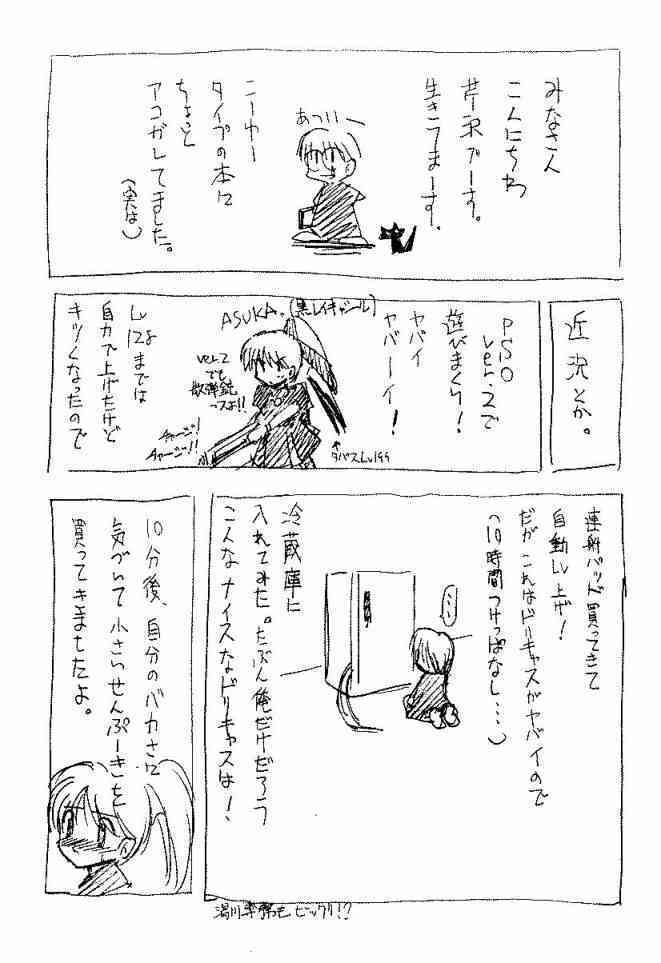 みなさん
こんにちわ
芹沢でーす。
生きてまーす。
あついー
こーゆー
タイプの本に
ちょっと
アコガレてました。
(実は)
近況とか。
PSO
ver.2で
遊びまくり!
ヤバイ
ヤバーイ!
ASUKA.(黒レイキャシール)
ver.2
でも
散弾銃
っスよ!!
チャージ!
チャージ!!
↑
タパスLv199
Lv128までは
自力で上げたけど
キツくなったので
連射パッド買ってきて
自動Lv上げ!
だが これはドリキャスがヤバイので
(10時間つけっぱなし…)
・・・
冷蔵庫に
入れてみた。たぶん俺だけだろう
こんなナイスなドリキャスは!
10分後、自分のバカさに
気づいて小さいせんぷーきを
買ってきましたよ。
湯川専務もビックリ!?